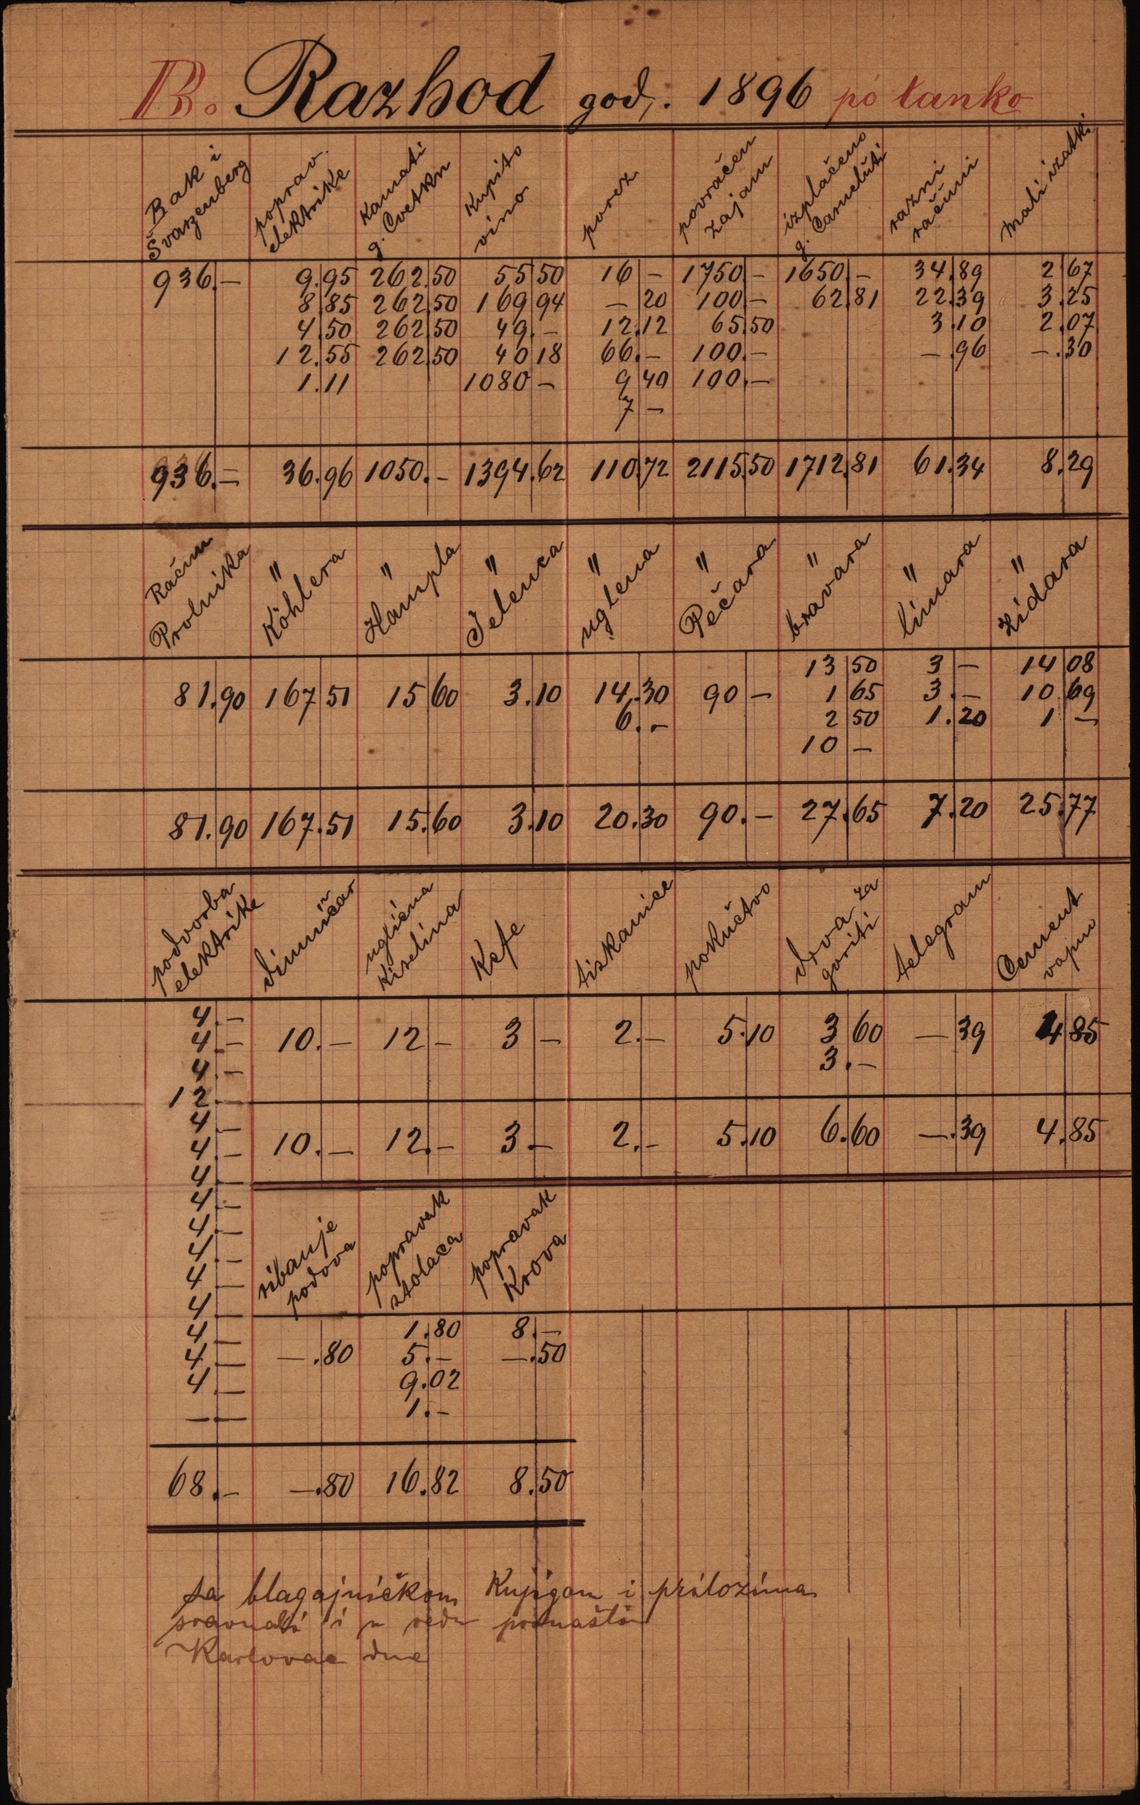 B. Razhod god. 1896 po tanko
Bak i Švarzenberg | poprav. elektrike | Kamati g. Cvetkn | Kupito vino | porez | povraćen zajam | izplaćeno g. Camelutti | razni računi | mali izatki
936.— | 9.95 | 262.50 | 55 50 | 16 — | 1750 — | 1650.— | 34.89 | 2 67
8.85 | 262.50 | 169 94 | — 20 | 100.— | 62.81 | 22.39 | 3.25
4.50 | 262.50 | 49.— | 12.12 | 65.50 | 3.10 | 2.07
12.55 | 262.50 | 40 18 | 66.— | 100.— | —.96 | —.30
1.11 | 1080 — | 9 40 | 100.—
7 —
936.— | 36.96 | 1050.— | 1394.62 | 110.72 | 2115.50 | 1712.81 | 61.34 | 8.29
Račun Prolnika | " Köhlera | " Hampla | " Jelenca | " uglena | " Pečara | " bravara | " limara | " Zidara
13 50 | 3 — | 14 08
81.90 | 167 51 | 15 60 | 3.10 | 14.30 | 90 — | 1 65 | 3.— | 10 69
6.— | 2 50 | 1.20 | 1 —
10 —
81.90 | 167.51 | 15.60 | 3.10 | 20.30 | 90.— | 27.65 | 7.20 | 25.77
podvorba elektrike | dimničar | uglična Kiselina | Kefe | tiskanice | pokućtvo | drva za goriti | telegram | Cement vapno
4.—
4.— | 10.— | 12 — | 3 — | 2.— | 5.10 | 3 60 | — 39 | 4 85
4.— | 3.—
12.—
4.—
4.— | 10.— | 12.— | 3.— | 2.— | 5.10 | 6.60 | —.39 | 4.85
4.—
4.—
4.—
4.—
4.—
4.—
ribanje podova | popravak stolaca | popravak Krova
4.— | 1.80 | 8.—
4.— | —.80 | 5.— | —.50
4.— | 9.02
—— | 1.—
68.— | —.80 | 16.82 | 8.50
sa blagajničkom Knjigom i prilozima
sravnali i u redu pronašli
Karlovac dne